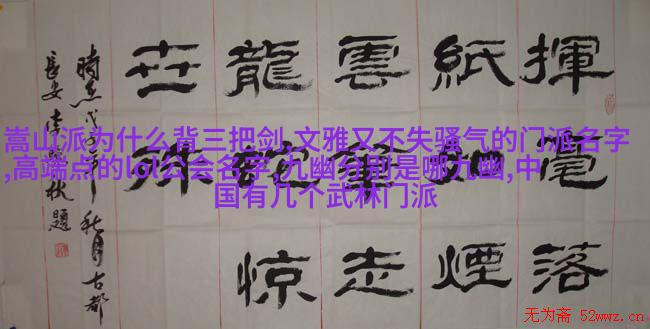 揮毫落
紙如煙
雲筆走
龍蛇惊
世殊
時在戊子年秋月古都
長安李秋題
嵩山派为什么背三把剑,文雅又不失骚气的门派名字
,高端点的lol公会名字,九幽分别是哪九幽,中
国有几个武林门派
无为斋 52wwz.cn